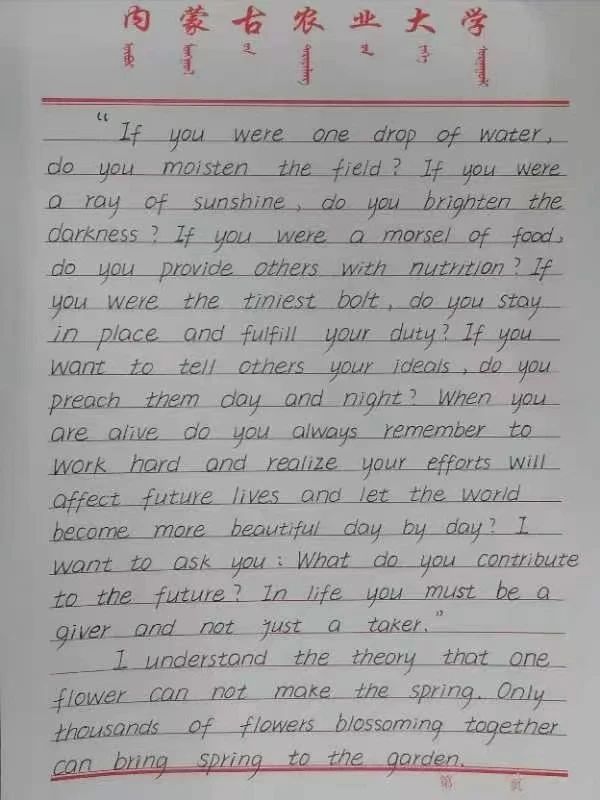 内蒙古农业大学
“If you were one drop of water,
do you moisten the field? If you were
a ray of sunshine, do you brighten the
darkness? If you were a morsel of food,
do you provide others with nutrition? If
you were the tiniest bolt, do you stay
in place and fulfill your duty? If you
want to tell others your ideals, do you
preach them day and night? When you
are alive do you always remember to
work hard and realize your efforts will
affect future lives and let the world
become more beautiful day by day? I
want to ask you: What do you contribute
to the future? In life you must be a
giver and not just a taker.”
I understand the theory that one
flower can not make the spring. Only
thousands of flowers blossoming together
can bring spring to the garden.
第 页